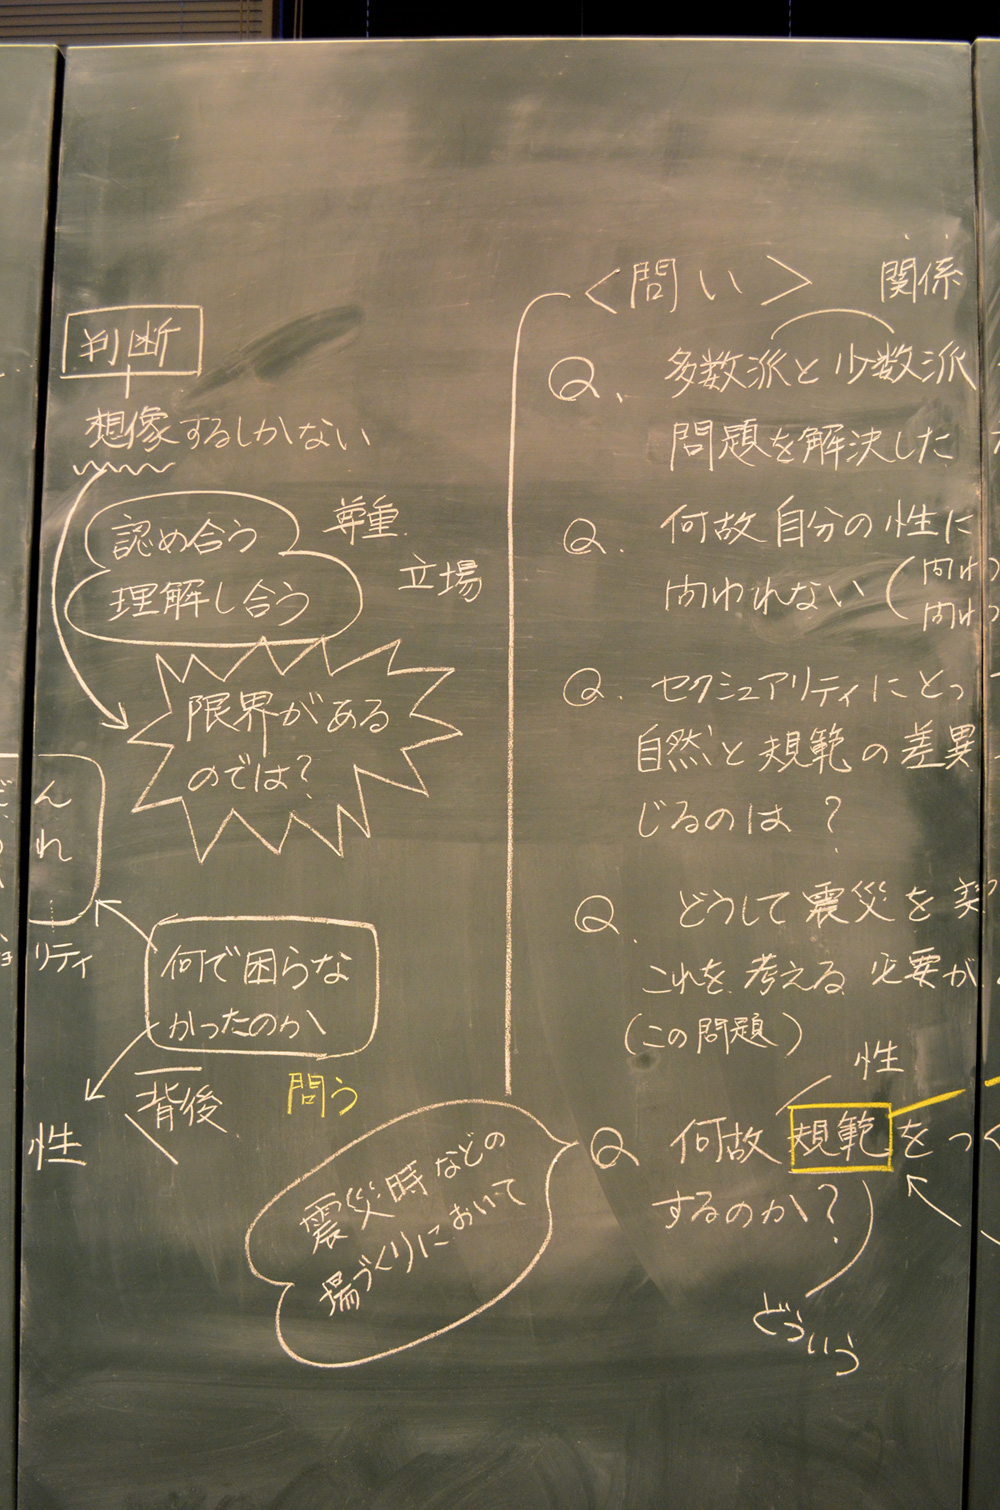 判断
想像するしかない
認め合う
理解し合う
尊重
立場
限界がある
のでは?
ん
れ
リティ
何で困らな
かったのか
背後
問う
性
震災時などの
場づくりにおいて
<問い>
関係
Q. 多数派と少数派
問題を解決した
Q. 何故自分の性に
問われない(問わ
問わ
Q. セクシュアリティにとっ
自然と規範の差異
じるのは?
Q. どうして震災を契
これを考える必要が
(この問題)
性
Q 何故規範をつく
するのか?
どういう